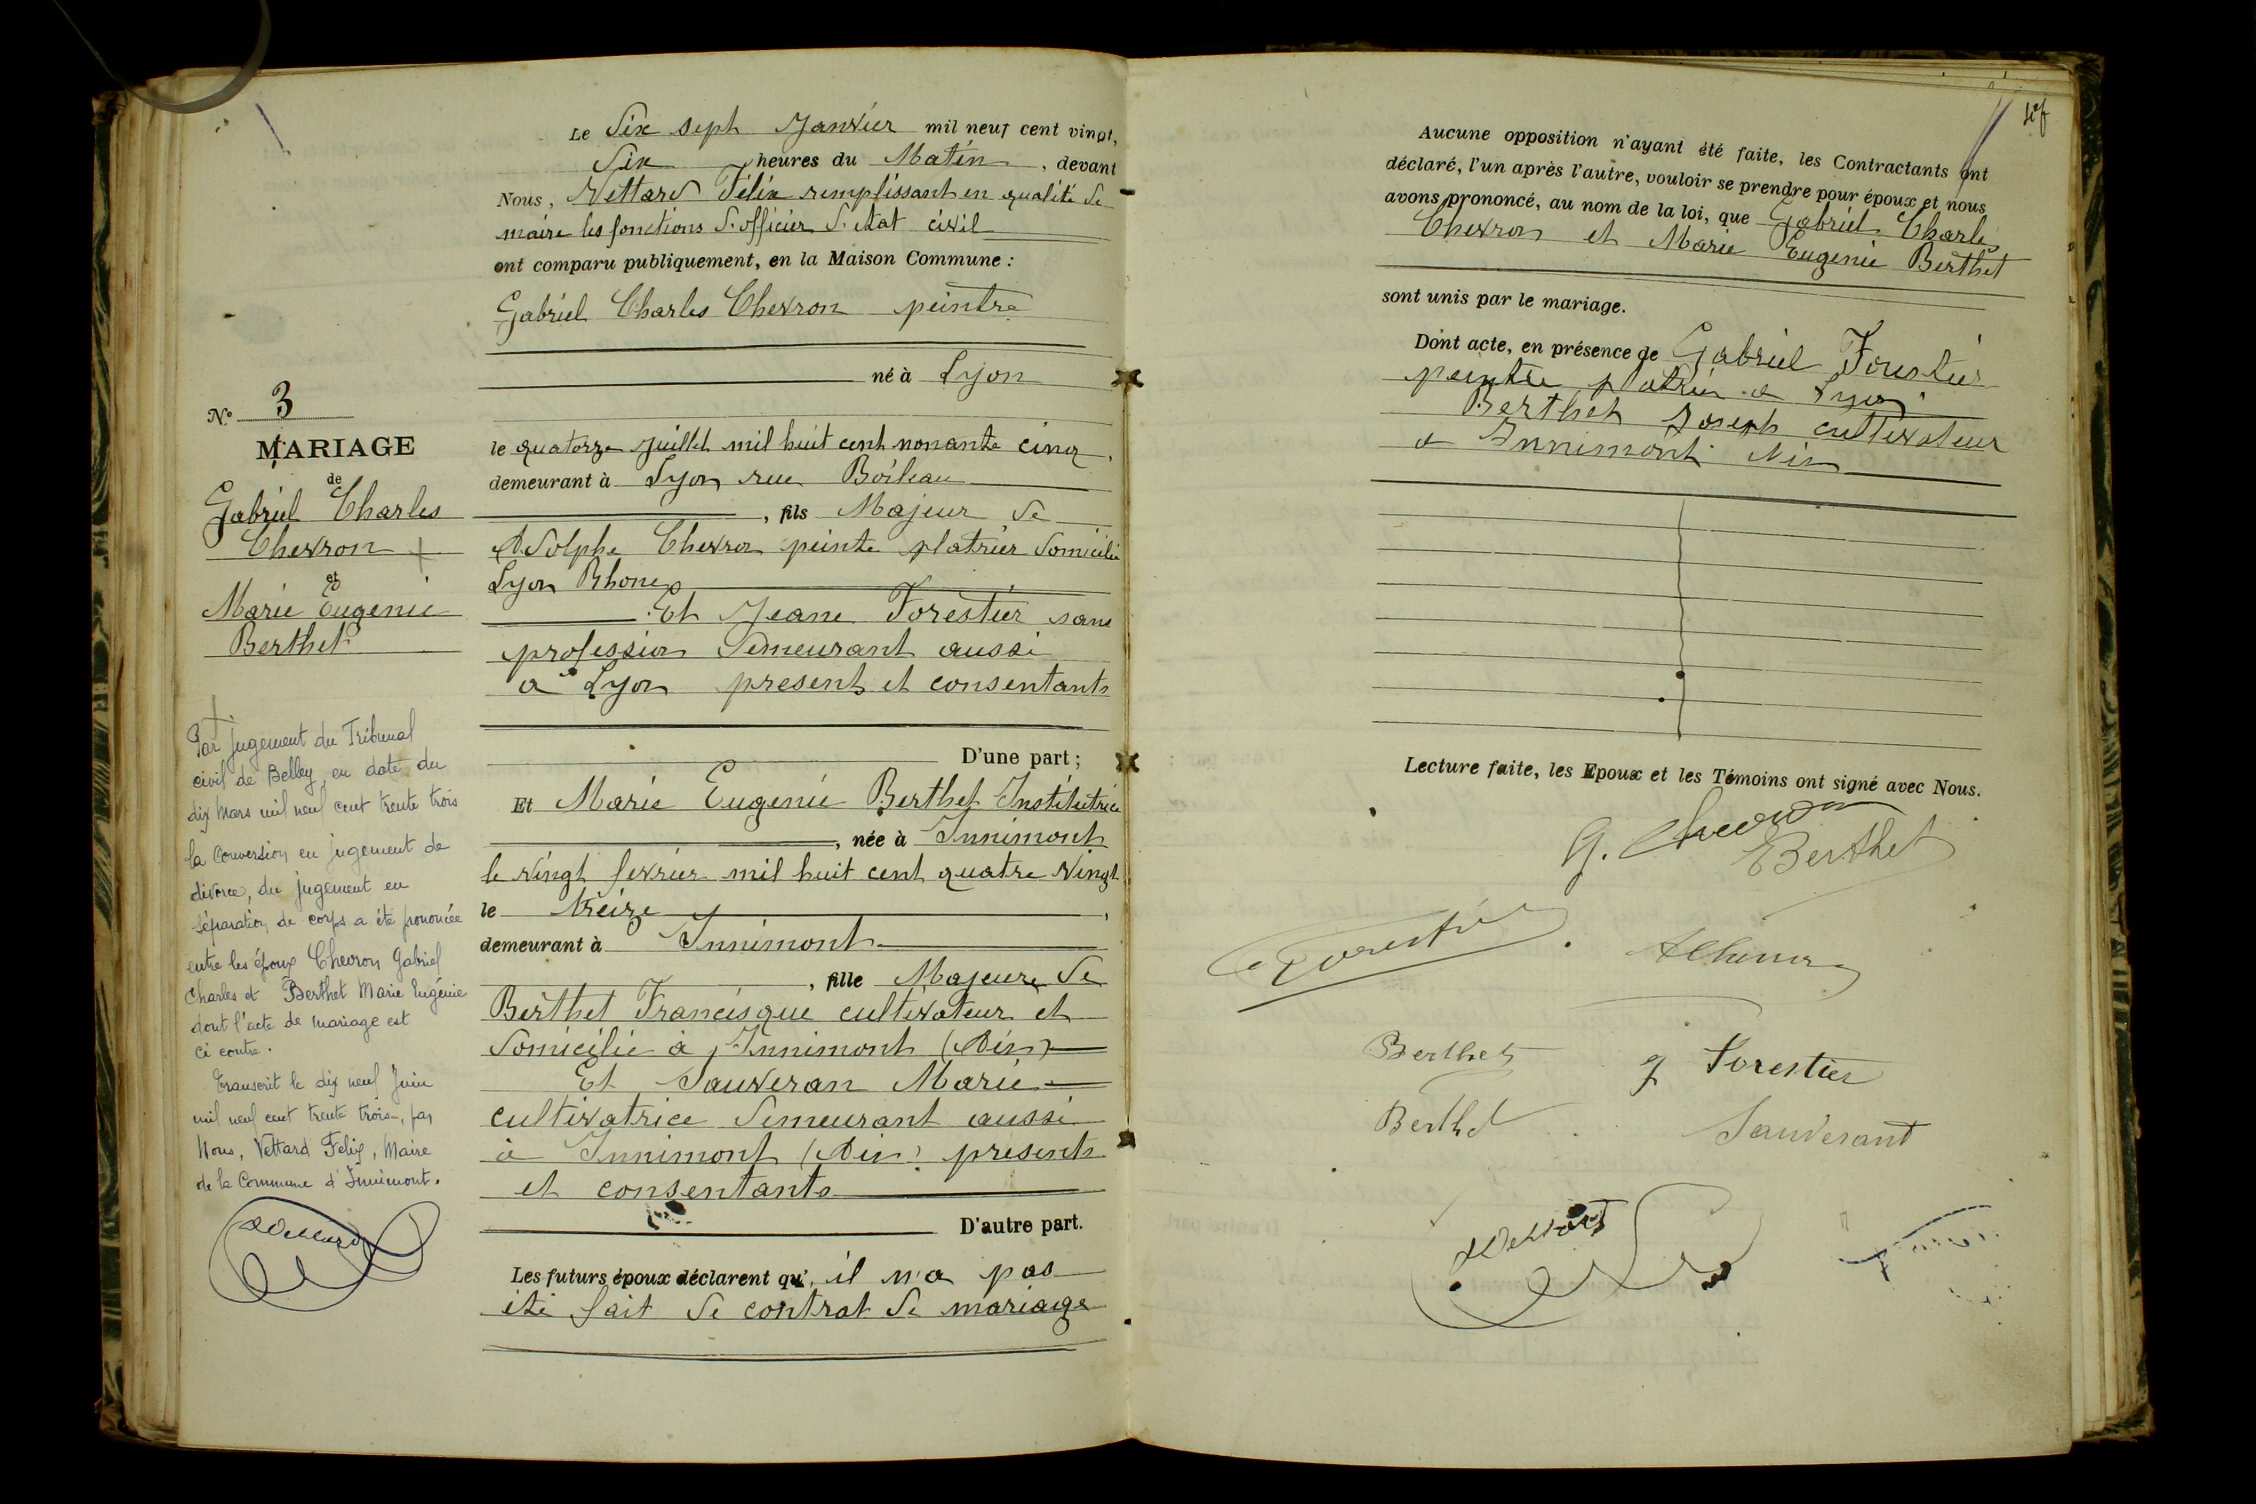 Le Dix sept Janvier mil neuf cent vingt,
Dix heures du Matin, devant
Nous, Vettard Félix remplissant en qualité de
maire les fonctions d'officier d'état civil
ont comparu publiquement, en la Maison Commune :
Gabriel Charles Chevron peintre
né à Lyon
le quatorze juillet mil huit cent nonante cinq,
demeurant à Lyon rue Boileau
, fils Majeur de
Adolphe Chevron peintre platrier domicilié
Lyon Rhone
Et Jeane Forestier sans
profession demeurant aussi
a Lyon present et consentants
D'une part ;
Et Marie Eugenie Berthet Institutrice
, née à Innimont
le vingt fevrier mil huit cent quatre vingt
le treize,
demeurant à Innimont
, fille Majeure de
Berthet Francisque cultivateur et
domicilié à Innimont (Ain)
Et Sauveran Marie
cultivatrice demeurant aussi
à Innimont (Ain) présents
et consentants
D'autre part.
Les futurs époux déclarent qu'il n'a pas
été fait de contrat de mariage
N° 3
MARIAGE
de
Gabriel Charles
Chevron +
et
Marie Eugenie
Berthet
+
Par jugement du Tribunal
civil de Belley en date du
dix Mars mil neuf cent trente trois
la conversion en jugement de
divorce, du jugement en
séparation de corps a été prononcée
entre les époux Chevron Gabriel
Charles et Berthet Marie Eugénie
dont l'acte de mariage est
ci contre.
Transcrit le dix neuf Juin
mil neuf cent trente trois, par
Nous, Vettard Felix, Maire
de la Commune d'Innimont.
Vettard
Aucune opposition n'ayant été faite, les Contractants ont
déclaré, l'un après l'autre, vouloir se prendre pour époux et nous
avons prononcé, au nom de la loi, que Gabriel Charles
Chevron et Marie Eugenie Berthet
sont unis par le mariage.
Dont acte, en présence de Gabriel Forestier
peintre platrier a Lyon
Berthet Joseph cultivateur
a Innimont Ain
Lecture faite, les Epoux et les Témoins ont signé avec Nous.
G. Chevron
E Berthet
Forestier
Berthet
g Forestier
Berthet
Sauverant
Vettard